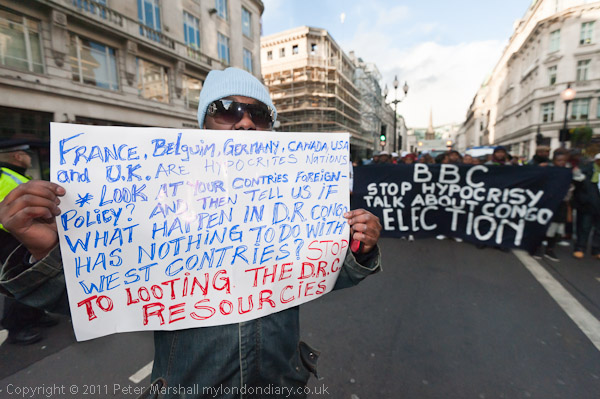 FRANCE, BELGUIM, GERMANY, CANADA, USA
AND U.K. ARE HYPOCRITES NATIONS
* LOOK AT YOUR CONTRIES FOREIGN-
POLICY? AND THEN TELL US IF
WHAT HAPPEN IN D.R. CONGO
HAS NOTHING TO DO WITH
WEST CONTRIES? STOP
TO LOOTING THE D.R.C.
RESOURCIES
BBC
STOP HYPOCRISY
TALK ABOUT CONGO
ELECTION
Copyright © 2011 Peter Marshall mylondondiary.co.uk